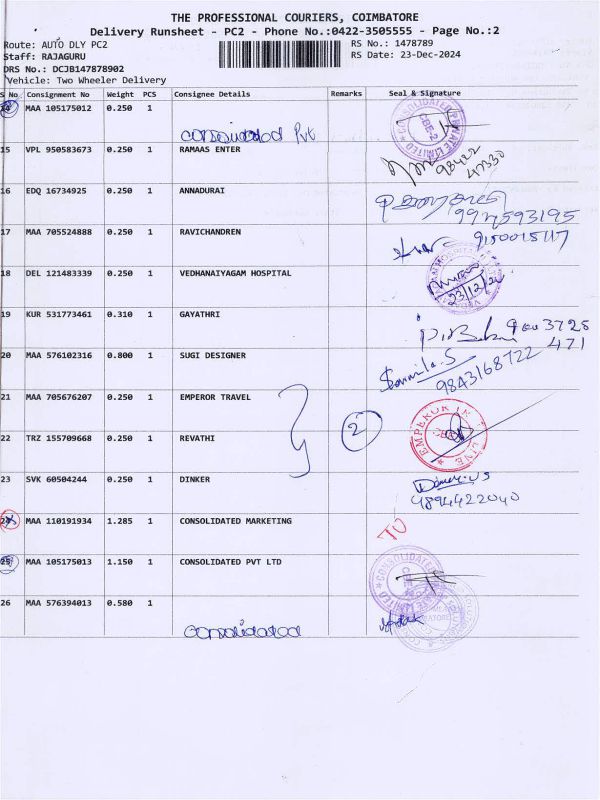 THE PROFESSIONAL COURIERS, COIMBATORE
Delivery Runsheet - PC2 - Phone No.:0422-3505555 - Page No.:2
Route: AUTO DLY PC2
Staff: RAJAGURU
DRS No.: DCJB147878902
Vehicle: Two Wheeler Delivery
RS No.: 1478789
RS Date: 23-Dec-2024
S No Consignment No Weight PCS Consignee Details Remarks Seal & Signature
14 MAA 105175012 0.250 1
consolidated Pvt
CONSOLIDATED PRIVATE LIMITED CBE-2
15 VPL 950583673 0.250 1 RAMAAS ENTER
98422 47330
16 EDQ 16734925 0.250 1 ANNADURAI
9994593195
17 MAA 705524888 0.250 1 RAVICHANDREN
9150015117
18 DEL 121483339 0.250 1 VEDHANAIYAGAM HOSPITAL
23/12/24
19 KUR 531773461 0.310 1 GAYATHRI
9003725 471
20 MAA 576102316 0.800 1 SUGI DESIGNER
Sharmila.S
9843168722
21 MAA 705676207 0.250 1 EMPEROR TRAVEL
2
EMPEROR TRAVEL LINE
22 TRZ 155709668 0.250 1 REVATHI
23 SVK 60504244 0.250 1 DINKER
9894422040
24 MAA 110191934 1.285 1 CONSOLIDATED MARKETING
TO
25 MAA 105175013 1.150 1 CONSOLIDATED PVT LTD
CONSOLIDATED PRIVATE LIMITED
26 MAA 576394013 0.580 1
consolidated